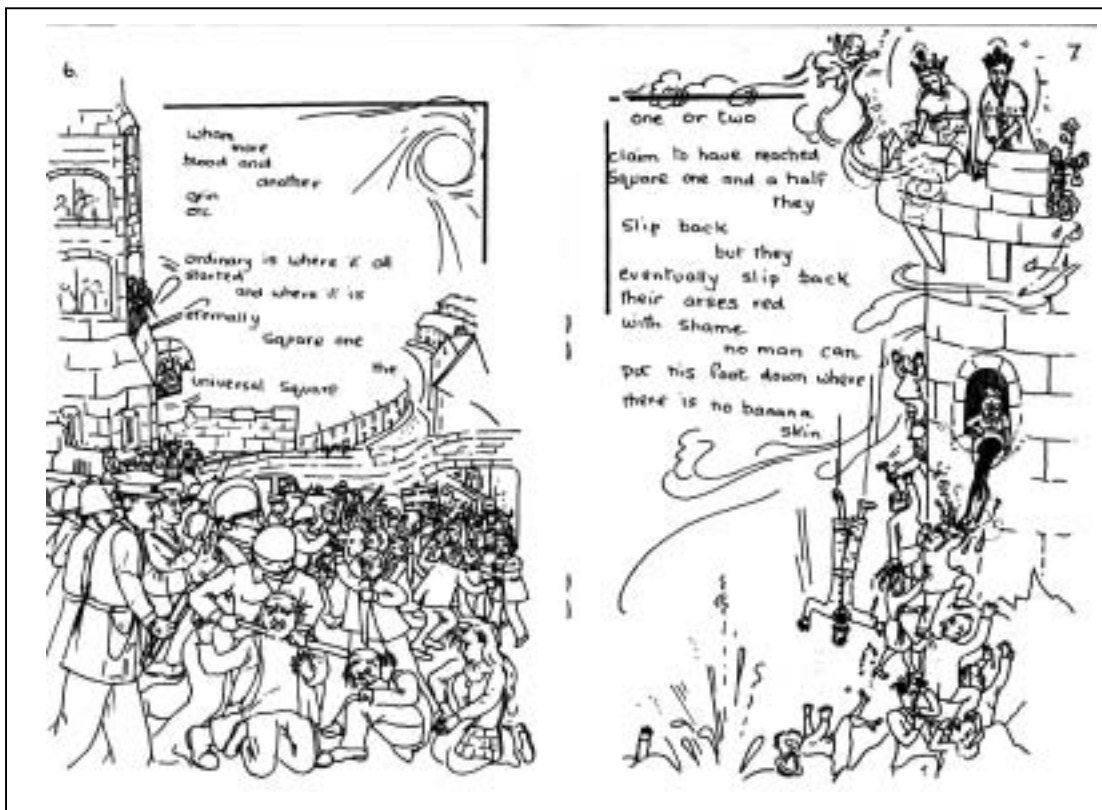 6.
wham
more
blood and
another
grin
etc
ordinary is where it all
started
and where it is
eternally
square one
the
universal square
7
one or two
claim to have reached
Square one and a half
they
slip back
but they
eventually slip back
their arses red
with shame
no man can
put his foot down where
there is no banana
skin